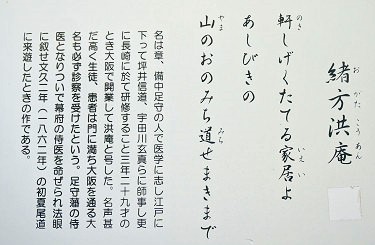 緒方洪庵
おがたこうあん
軒しげくたてる家居よ
のきいえい
あしびきの
山のおのみち道せまきまで
やまみち
名は章、備中足守の人で医学に志し江戸に
下って坪井信道、宇田川玄真らに師事し更
に長崎に於て研修すること三年二十九才の
とき大阪で開業して洪庵と号した。名声甚
だ高く生徒、患者は門に満ち大阪を通る大
名も必ず診察を受けたという。足守藩の侍
医となりついで幕府の侍医を命ぜられ法眼
に叙せ文久二年（一八六二年）の初夏尾道
に来遊したときの作である。